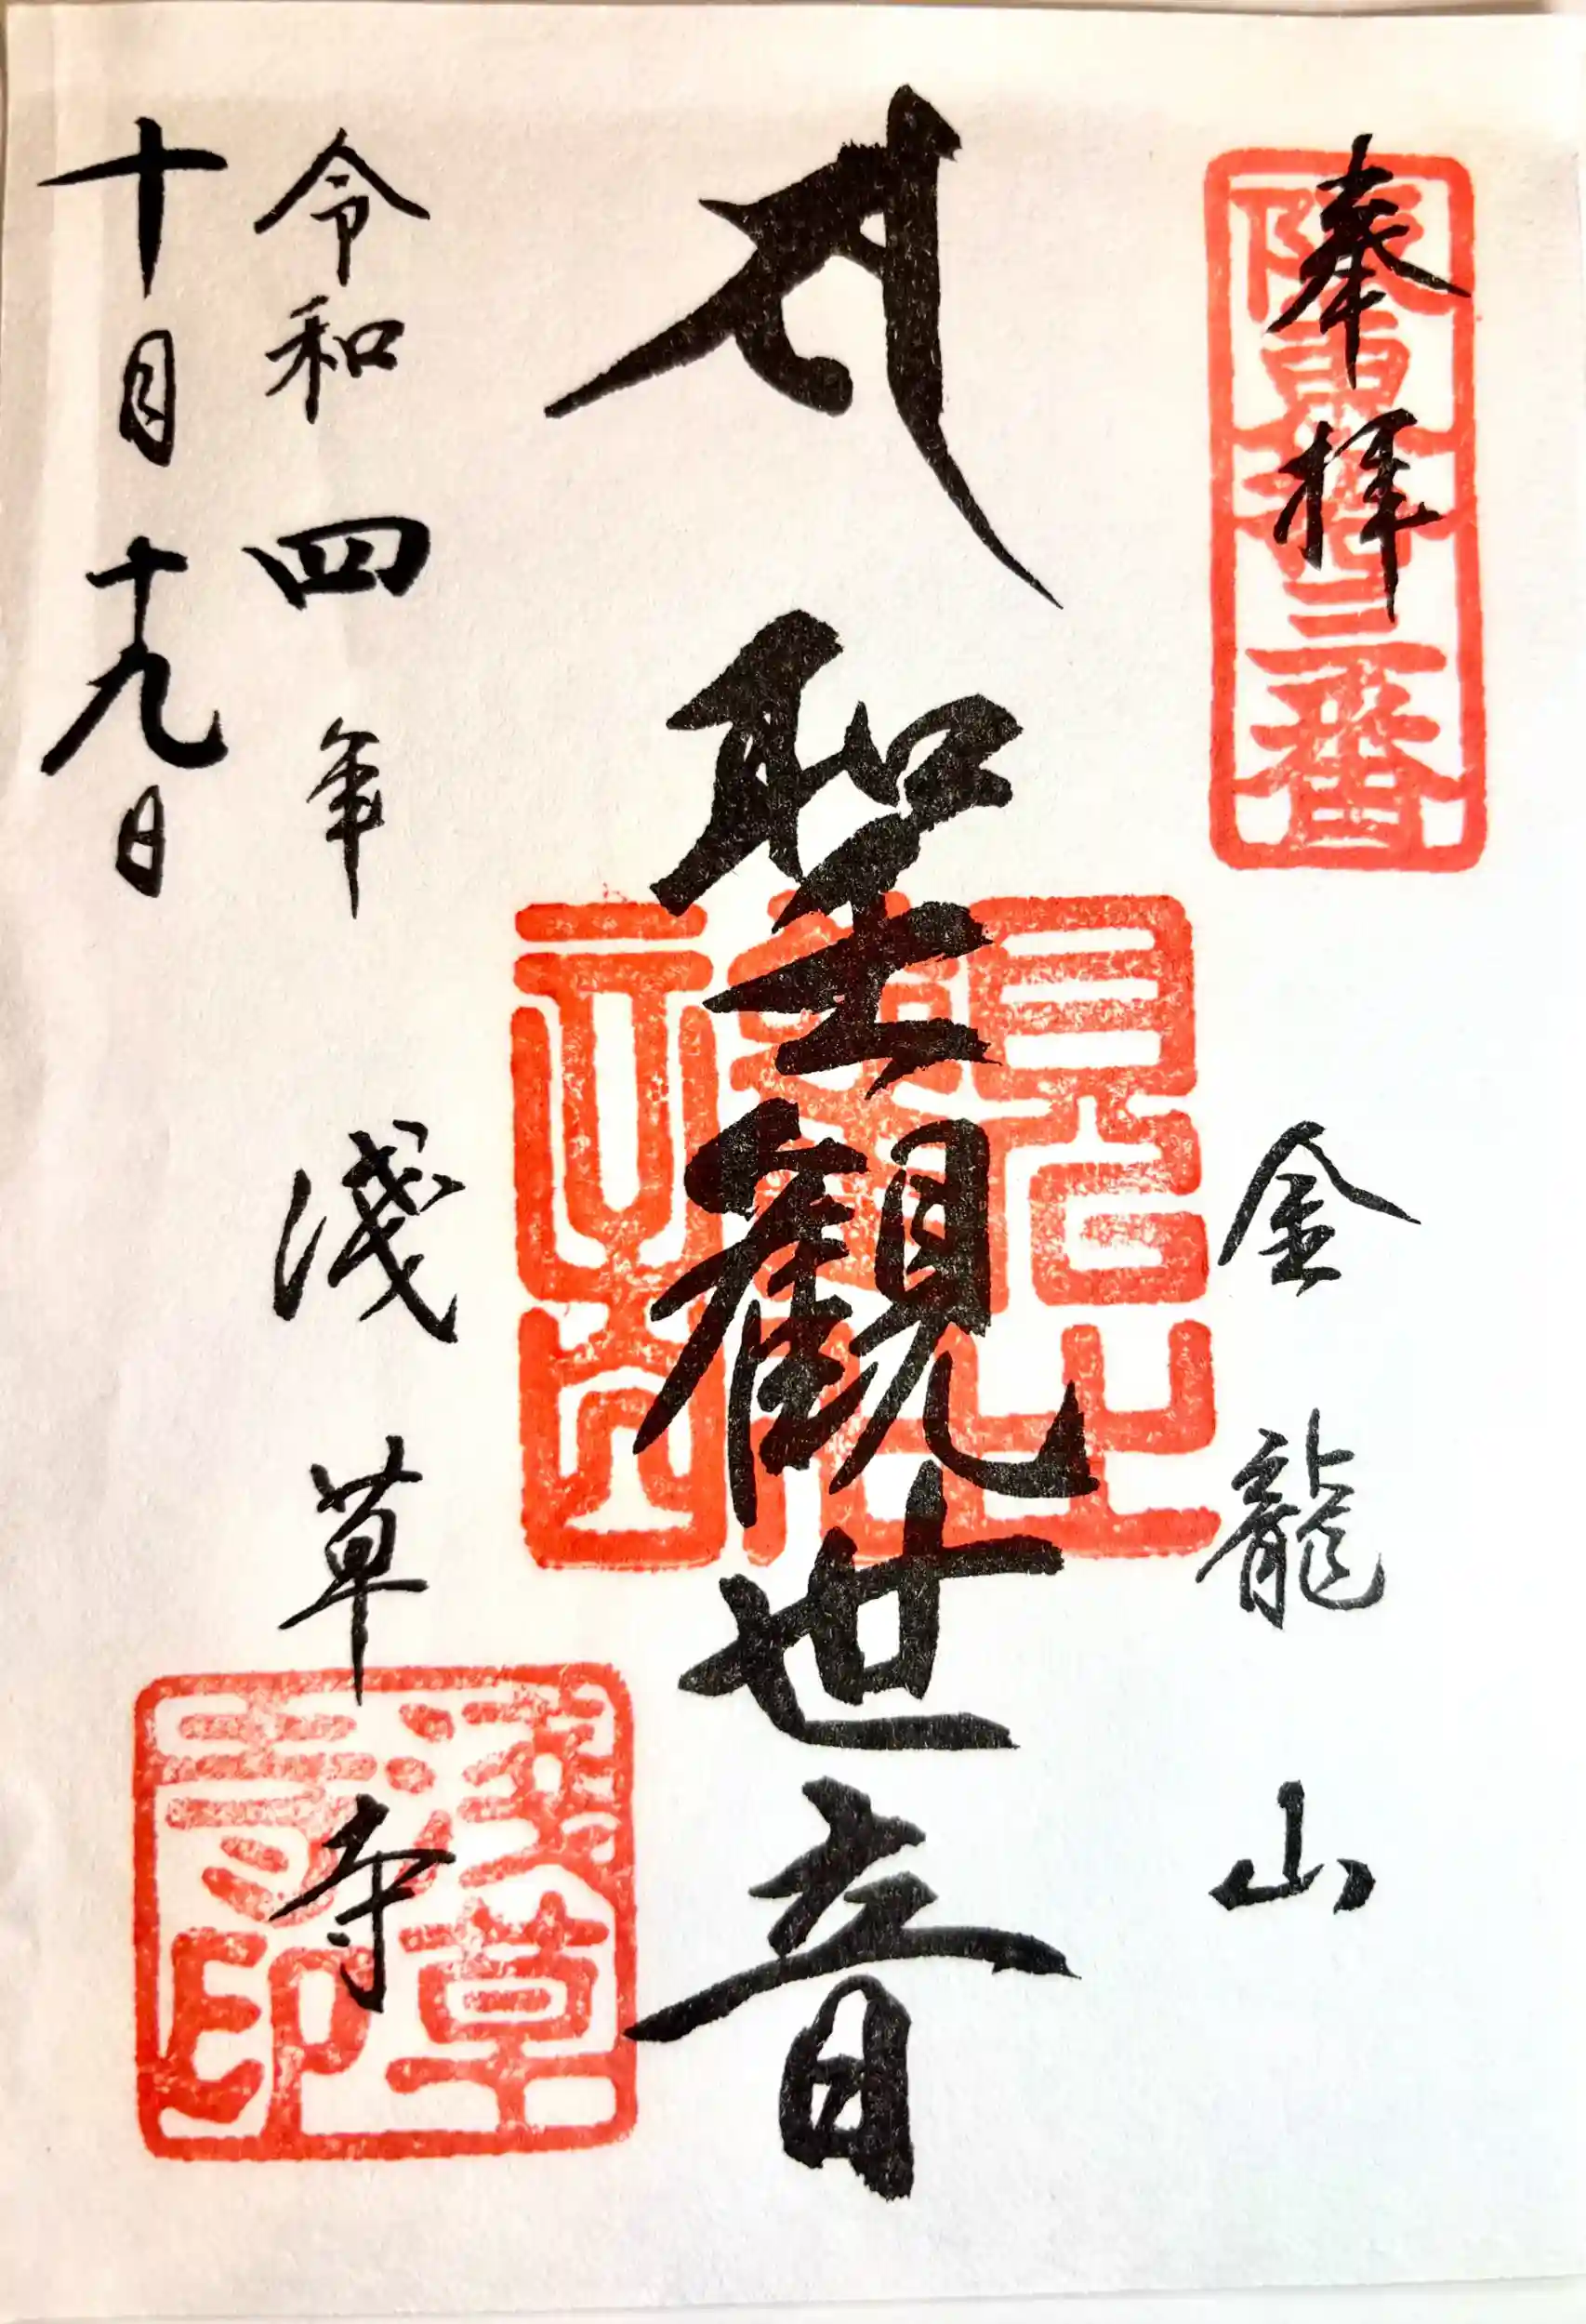 奉拝
阪東拾三番
金龍山
聖観世音
令和四年
十月十九日
淺草寺
淺草寺印